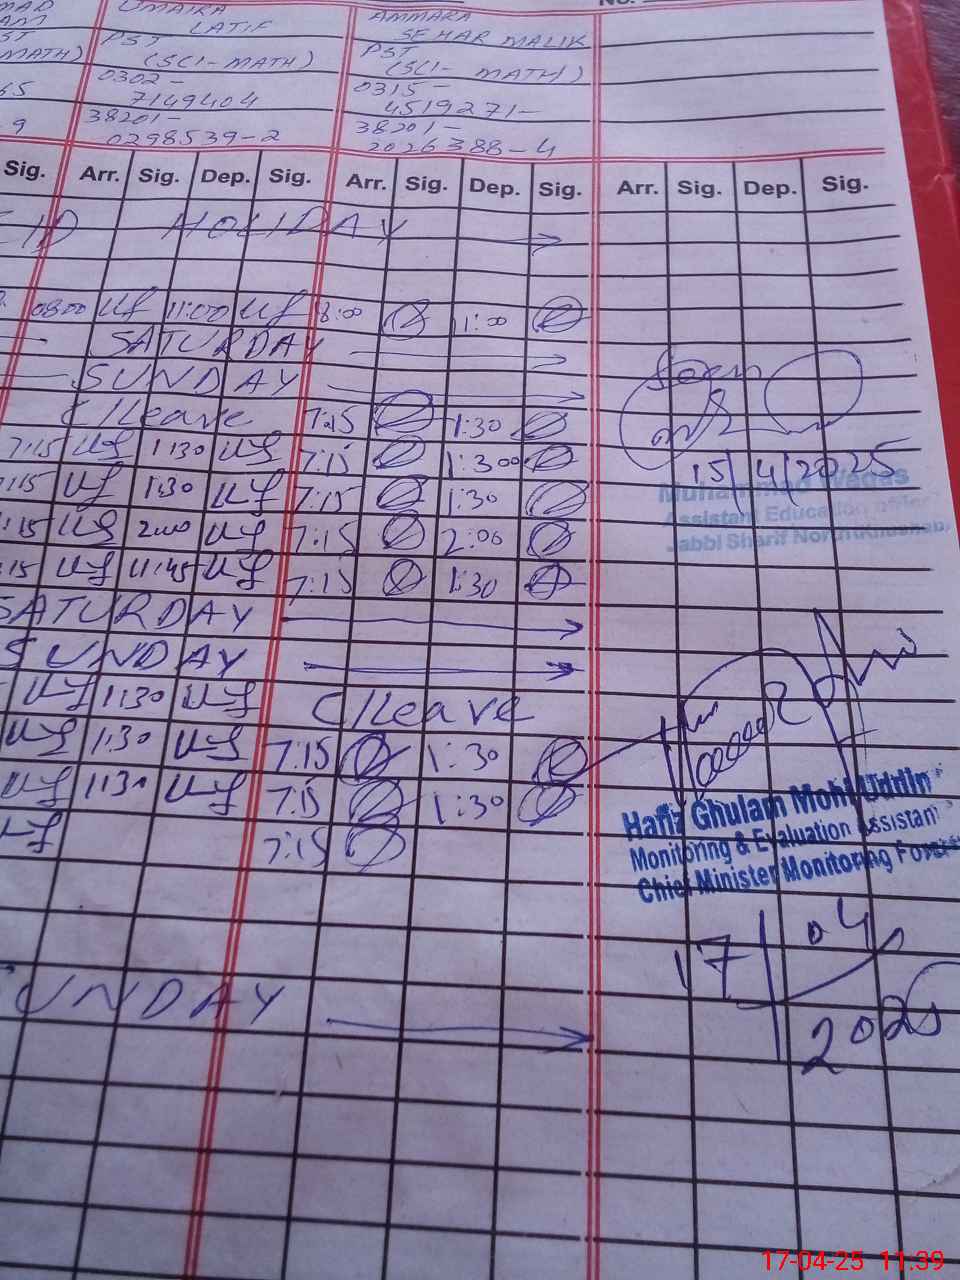 No.
MAD UMAIRA AMMARA
AM LATIF SEHAR MALIK
ST PST PST
MATH) (SCI-MATH) (SCI- MATH)
65 0302- 0315-
7149404 4519271-
9 38201- 38201-
0298539-2 2026388-4
Sig. Arr. Sig. Dep. Sig. Arr. Sig. Dep. Sig. Arr. Sig. Dep. Sig.
EID HOLIDAY
08:00 11:00 8:00 11:00
SATURDAY
SUNDAY
C/Leave 7:15 1:30
7:15 1:30 7:15 1:30
7:15 1:30 7:15 1:30
7:15 2:00 7:15 2:00
:15 11:45 7:15 1:30
SATURDAY
SUNDAY
1:30 C/Leave
1:30 7:15 1:30
1:30 7:15 1:30
7:15
SUNDAY
Seen
15/4/2025
Muhammad Waqas
Assistant Education officer
Jabbi Sharif North Khushab
Hafiz Ghulam Mohi Uddin
Monitoring & Evaluation Assistant
Chief Minister Monitoring Force
17/04/2025
17-04-25 11:39